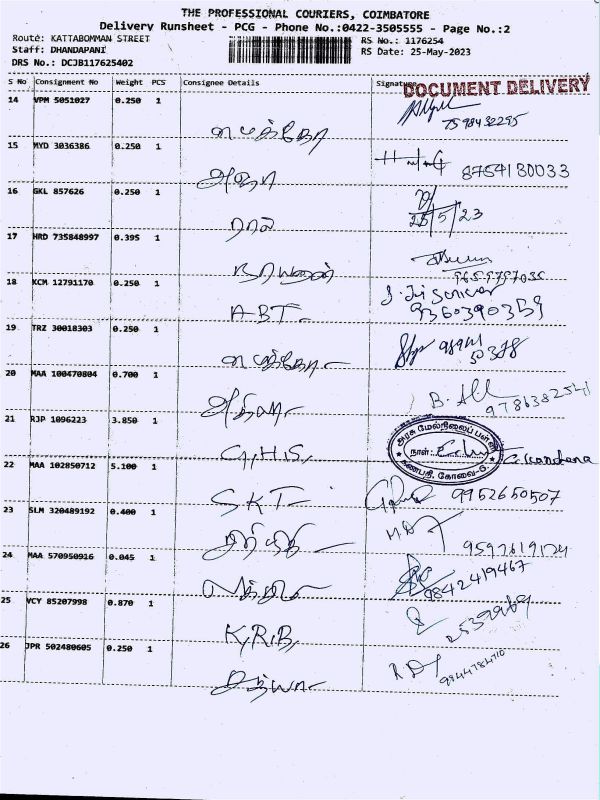 THE PROFESSIONAL COURIERS, COIMBATORE
Delivery Runsheet - PCG - Phone No.:0422-3505555 - Page No.:2
Route: KATTABOMMAN STREET
RS No.: 1176254
Staff: DHANDAPANI
RS Date: 25-May-2023
DRS No.: DCJB117625402
S No Consignment No Weight PCS Consignee Details Signature
DOCUMENT DELIVERY
14 VPM 5051027 0.250 1
7598432295
15 MYD 3036386 0.250 1
8754180033
16 GKL 857626 0.250 1
25/5/23
17 HRD 735848997 0.395 1
நாராயணன்
18 KCM 12791170 0.250 1
ABT
9360390359
19 TRZ 30018303 0.250 1
20 MAA 100470804 0.700 1
9786382541
21 RJP 1096223 3.850 1
G.H.S.
அரசு மேல்நிலைப் பள்ளி
நாள்:
கணபதி, கோவை-6.
22 MAA 102850712 5.100 1
SKT
9952650507
23 SLM 320489192 0.400 1
9597619124
24 MAA 570950916 0.045 1
9842419467
25 VCY 85207998 0.870 1
K.R.B,
2539969
26 JPR 502480605 0.250 1
சத்யா
9944784710